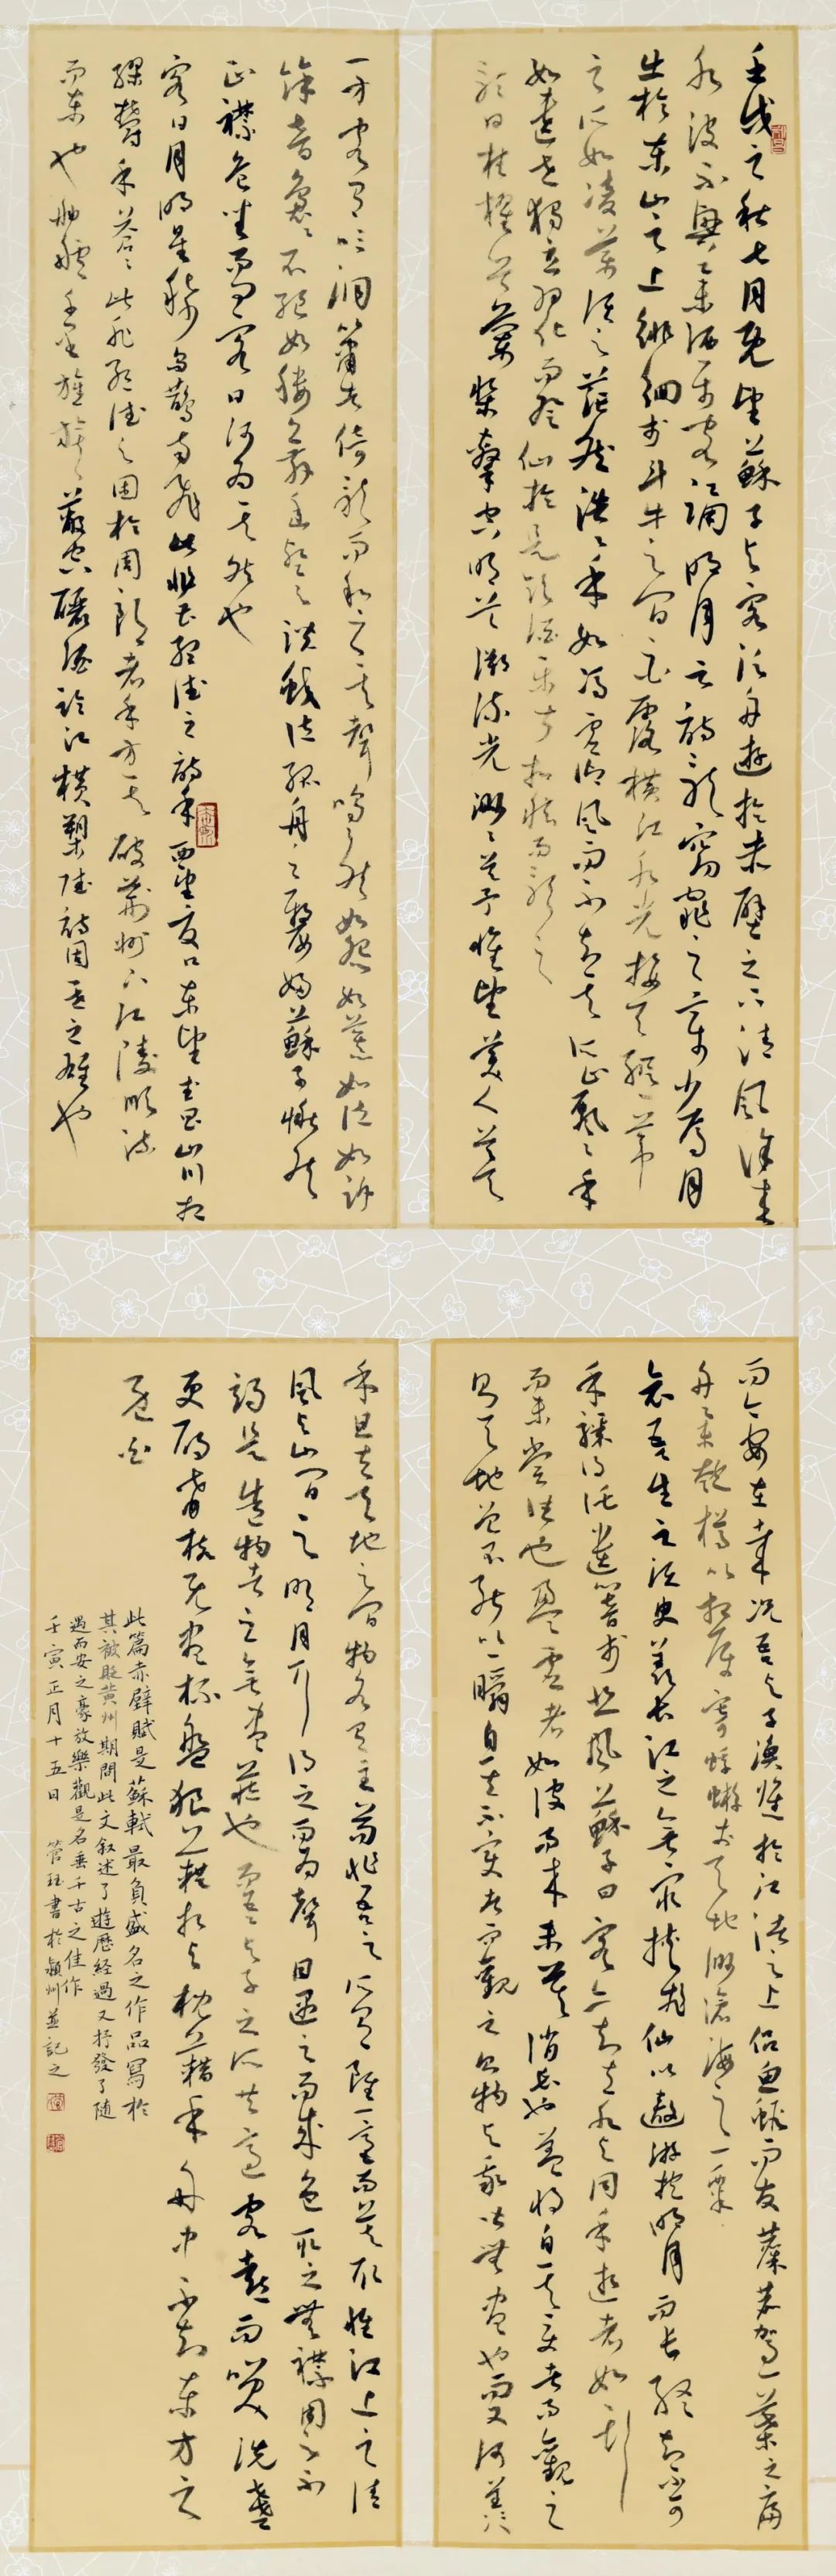 壬戌之秋七月既望蘇子與客泛舟遊於赤壁之下清風徐來
水波不興舉酒屬客誦明月之詩歌窈窕之章少焉月
出於東山之上徘徊於斗牛之間白露橫江水光接天縱一葦
之所如凌萬頃之茫然浩浩乎如馮虛御風而不知其所止飄飄乎
如遺世獨立羽化而登仙於是飲酒樂甚扣舷而歌之
歌曰桂櫂兮蘭槳擊空明兮溯流光渺渺兮予懷望美人兮天
一方客有吹洞簫者倚歌而和之其聲嗚嗚然如怨如慕如泣如訴
餘音裊裊不絕如縷舞幽壑之潛蛟泣孤舟之嫠婦蘇子愀然
正襟危坐而問客曰何為其然也
客曰月明星稀烏鵲南飛此非孟德之詩乎西望夏口東望武昌山川相
繆鬱乎蒼蒼此非孟德之困於周郎者乎方其破荊州下江陵順流
而東也舳艫千里旌旗蔽空釃酒臨江橫槊賦詩固一世之雄也
而今安在哉況吾與子漁樵於江渚之上侶魚蝦而友麋鹿駕一葉之扁
舟舉匏樽以相屬寄蜉蝣於天地渺滄海之一粟
哀吾生之須臾羨長江之無窮挾飛仙以遨遊抱明月而長終知不可
乎驟得託遺響於悲風蘇子曰客亦知夫水與月乎逝者如斯
而未嘗往也盈虛者如彼而卒莫消長也蓋將自其變者而觀之
則天地曾不能以一瞬自其不變者而觀之則物與我皆無盡也而又何羨
乎且夫天地之間物各有主苟非吾之所有雖一毫而莫取惟江上之清
風與山間之明月耳得之而為聲目遇之而成色取之無禁用之不
竭是造物者之無盡藏也而吾與子之所共適客喜而笑洗盞
更酌肴核既盡杯盤狼藉相與枕藉乎舟中不知東方之
既白
此篇赤壁賦是蘇軾最負盛名之作品寫於
其被貶黃州期間此文敘述了遊歷經過又抒發了隨
遇而安之豪放樂觀是名垂千古之佳作
壬寅正月十五日 管珏書於潁州並記之